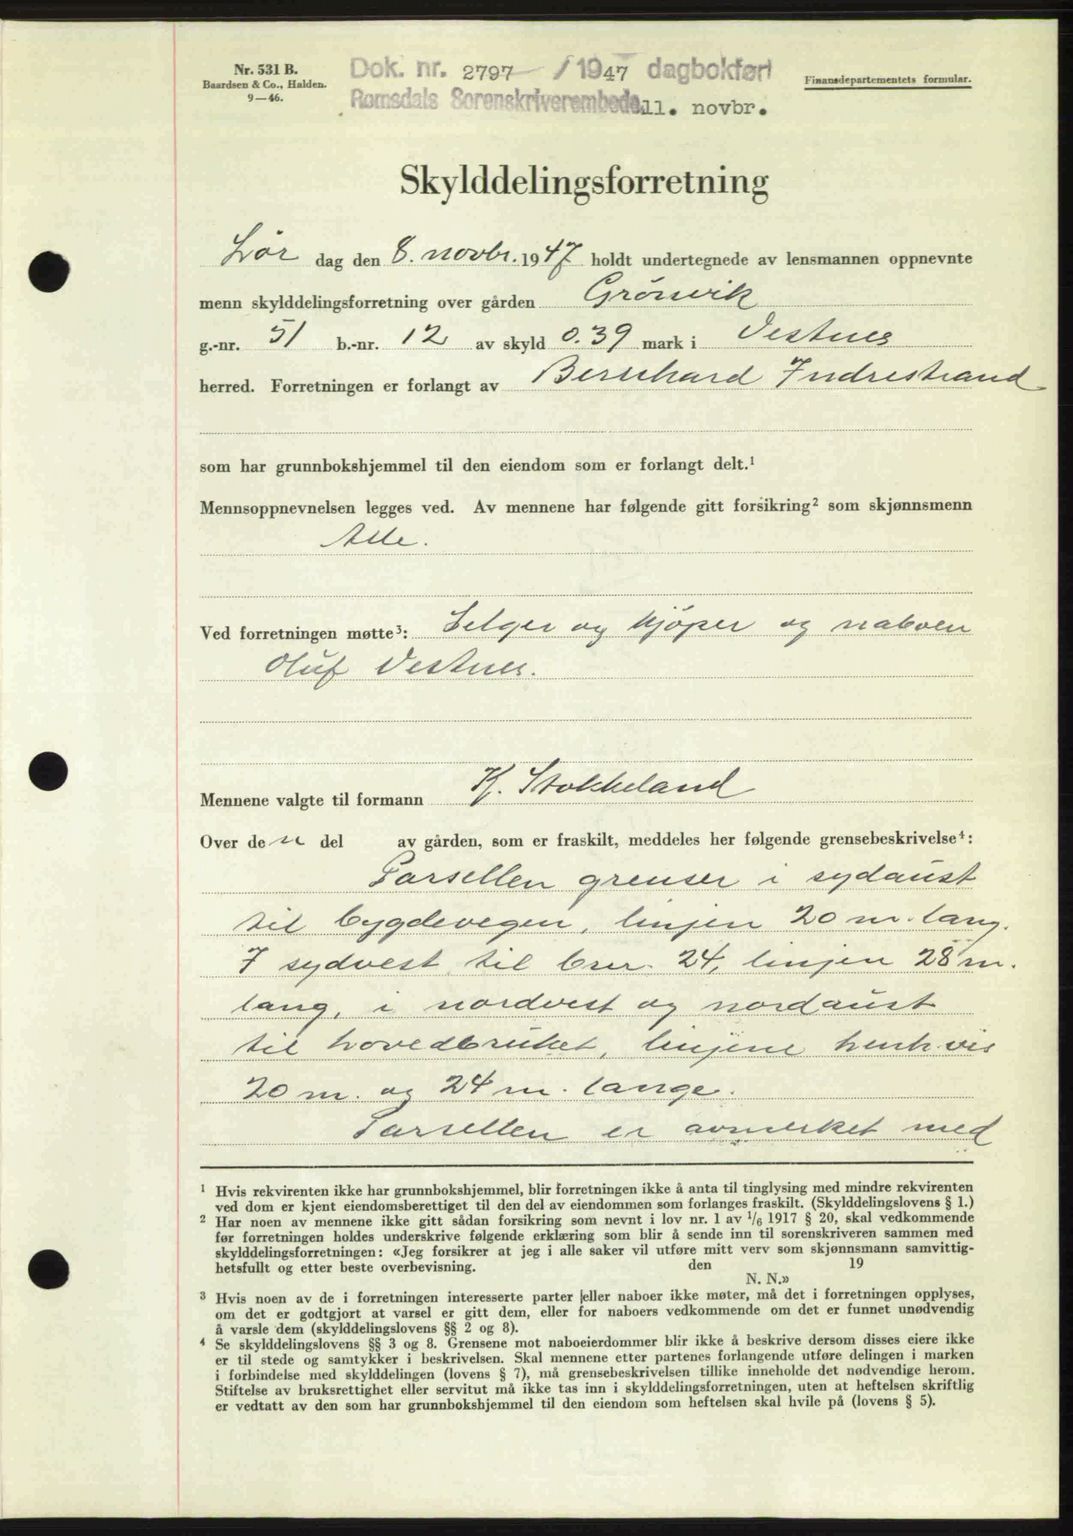 Nr. 531 B.
Baardsen & Co., Halden.
9—46.
Dok. nr. 2797 / 1947 dagbokført
Romsdals Sorenskriverembede 11. novbr.
Finansdepartementets formular.
Skylddelingsforretning
Lør dag den 8. novbr. 1947 holdt undertegnede av lensmannen oppnevnte
menn skylddelingsforretning over gården Grönvik
g.-nr. 51 b.-nr. 12 av skyld 0.39 mark i Vestnes
herred. Forretningen er forlangt av Bernhard Indrestrand
som har grunnbokshjemmel til den eiendom som er forlangt delt.¹
Mennsoppnevnelsen legges ved. Av mennene har følgende gitt forsikring² som skjønnsmenn
Alle.
Ved forretningen møtte³: Selger og kjöper og naboen
Oluf Vestnes.
Mennene valgte til formann K. Stokkeland
Over den del av gården, som er fraskilt, meddeles her følgende grensebeskrivelse⁴:
Parsellen grenser i sydaust
til bygdevegen, linjen 20 m. lang.
I sydvest til brnr. 24, linjen 28 m.
lang, i nordvest og nordaust
til hovedbruket, linjene henh.vis
20 m. og 24 m. lange.
Parsellen er avmerket med
¹ Hvis rekvirenten ikke har grunnbokshjemmel, blir forretningen ikke å anta til tinglysing med mindre rekvirenten
ved dom er kjent eiendomsberettiget til den del av eiendommen som forlanges fraskilt. (Skylddelingslovens § 1.)
² Har noen av mennene ikke gitt sådan forsikring som nevnt i lov nr. 1 av 1/6 1917 § 20, skal vedkommende
før forretningen holdes underskrive følgende erklæring som blir å sende inn til sorenskriveren sammen med
skylddelingsforretningen: «Jeg forsikrer at jeg i alle saker vil utføre mitt verv som skjønnsmann samvittig-
hetsfullt og etter beste overbevisning. den 19
N. N.»
³ Hvis noen av de i forretningen interesserte parter eller naboer ikke møter, må det i forretningen opplyses,
om det er godtgjort at varsel er gitt dem, eller for naboers vedkommende om det er funnet unødvendig
å varsle dem (skylddelingslovens §§ 2 og 8).
⁴ Se skylddelingslovens §§ 3 og 8. Grensene mot naboeierdommer blir ikke å beskrive dersom disses eiere ikke
er til stede og samtykker i beskrivelsen. Skal mennene etter partenes forlangende utføre delingen i marken
i forbindelse med skylddelingen (lovens § 7), må grensebeskrivelsen tillike inneholde det nødvendige herom.
Stiftelse av bruksrettighet eller servitut må ikke tas inn i skylddelingsforretningen, uten at heftelsen skriftlig
er vedtatt av den som har grunnbokshjemmel til den eiendom som heftelsen skal hvile på (lovens § 5).